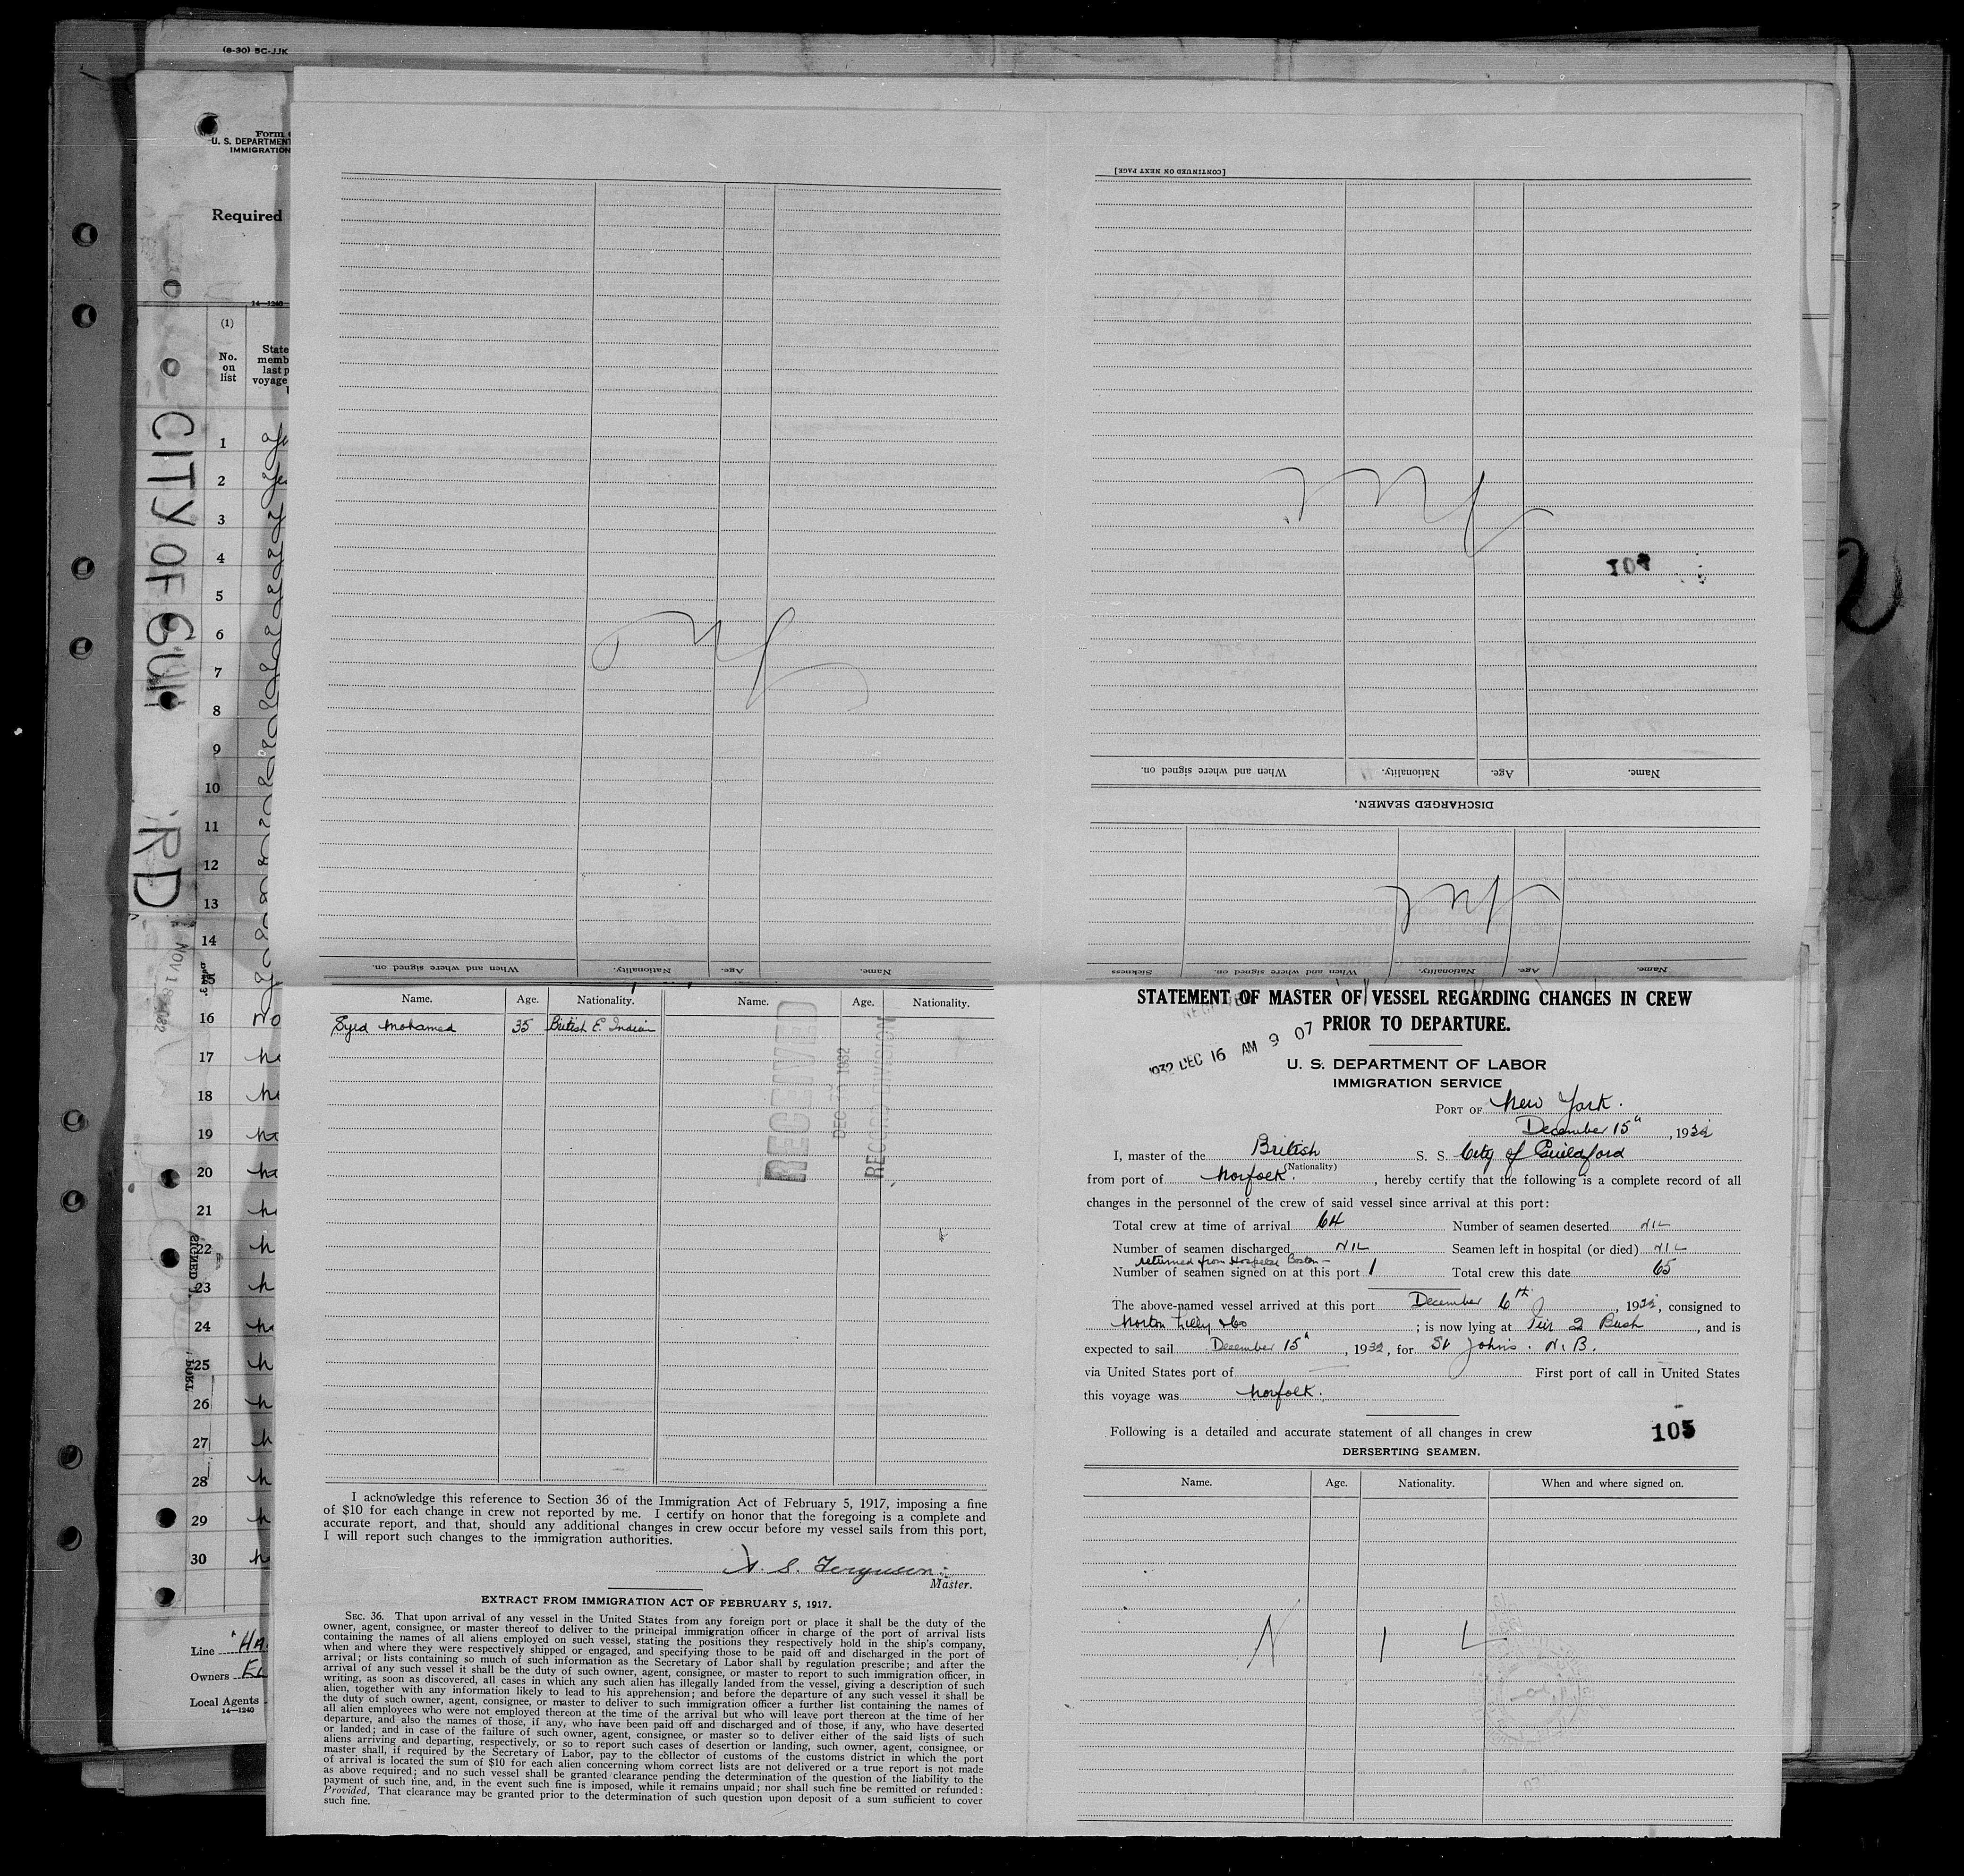 (8-30) 5C-JJK
Form
U. S. DEPARTMENT
IMMIGRATION
Required
14—1240
(1)
No.
on
list
State
memb
last p
voyage
CITY OF GUI RD
1
2
3
4
5
6
7
8
9
10
11
12
13
14
15
16 No
17
18
19
20
21
22
23
24
25
26
27
28
29
30
Line
Owners
Local Agents
14—1240
When and where signed on.
Nationality.
Age.
Name.
[CONTINUED ON NEXT PAGE]
Nil
104
When and where signed on.
Nationality.
Age.
Name.
DISCHARGED SEAMEN.
Nil
Sickness
When and where signed on.
Nationality.
Age.
Name.
Name. Age. Nationality. Name. Age. Nationality.
Syed Mohamed 35 British E. Indian
RECEIVED
DEC 1932
RECORD DIVISION
I acknowledge this reference to Section 36 of the Immigration Act of February 5, 1917, imposing a fine
of $10 for each change in crew not reported by me. I certify on honor that the foregoing is a complete and
accurate report, and that, should any additional changes in crew occur before my vessel sails from this port,
I will report such changes to the immigration authorities.
S. Ferguson
Master.
EXTRACT FROM IMMIGRATION ACT OF FEBRUARY 5, 1917.
SEC. 36. That upon arrival of any vessel in the United States from any foreign port or place it shall be the duty of the
owner, agent, consignee, or master thereof to deliver to the principal immigration officer in charge of the port of arrival lists
containing the names of all aliens employed on such vessel, stating the positions they respectively hold in the ship's company,
when and where they were respectively shipped or engaged, and specifying those to be paid off and discharged in the port of
arrival; or lists containing so much of such information as the Secretary of Labor shall by regulation prescribe; and after the
arrival of any such vessel it shall be the duty of such owner, agent, consignee, or master to report to such immigration officer, in
writing, as soon as discovered, all cases in which any such alien has illegally landed from the vessel, giving a description of such
alien, together with any information likely to lead to his apprehension; and before the departure of any such vessel it shall be
the duty of such owner, agent, consignee, or master to deliver to such immigration officer a further list containing the names of
all alien employees who were not employed thereon at the time of the arrival but who will leave port thereon at the time of her
departure, and also the names of those, if any, who have been paid off and discharged and of those, if any, who have deserted
or landed; and in case of the failure of such owner, agent, consignee, or master so to deliver either of the said lists of such
aliens arriving and departing, respectively, or so to report such cases of desertion or landing, such owner, agent, consignee, or
master shall, if required by the Secretary of Labor, pay to the collector of customs of the customs district in which the port
of arrival is located the sum of $10 for each alien concerning whom correct lists are not delivered or a true report is not made
as above required; and no such vessel shall be granted clearance pending the determination of the question of the liability to the
payment of such fine, and, in the event such fine is imposed, while it remains unpaid; nor shall such fine be remitted or refunded:
Provided, That clearance may be granted prior to the determination of such question upon deposit of a sum sufficient to cover
such fine.
STATEMENT OF MASTER OF VESSEL REGARDING CHANGES IN CREW
PRIOR TO DEPARTURE.
1932 DEC 16 AM 9 07
U. S. DEPARTMENT OF LABOR
IMMIGRATION SERVICE
PORT OF New York.
December 15th, 1932
I, master of the British S. S. City of Guildford
(Nationality)
from port of Norfolk., hereby certify that the following is a complete record of all
changes in the personnel of the crew of said vessel since arrival at this port:
Total crew at time of arrival 64 Number of seamen deserted NIL
Number of seamen discharged NIL Seamen left in hospital (or died) NIL
returned from Hospital Boston —
Number of seamen signed on at this port 1 Total crew this date 65
The above-named vessel arrived at this port December 6th, 1932, consigned to
Norton Lilly & Co; is now lying at Pier 2 Bush, and is
expected to sail December 15th, 1932, for St Johns. N. B.
via United States port of First port of call in United States
this voyage was Norfolk.
Following is a detailed and accurate statement of all changes in crew
105
DERSERTING SEAMEN.
Name. Age. Nationality. When and where signed on.
N I L